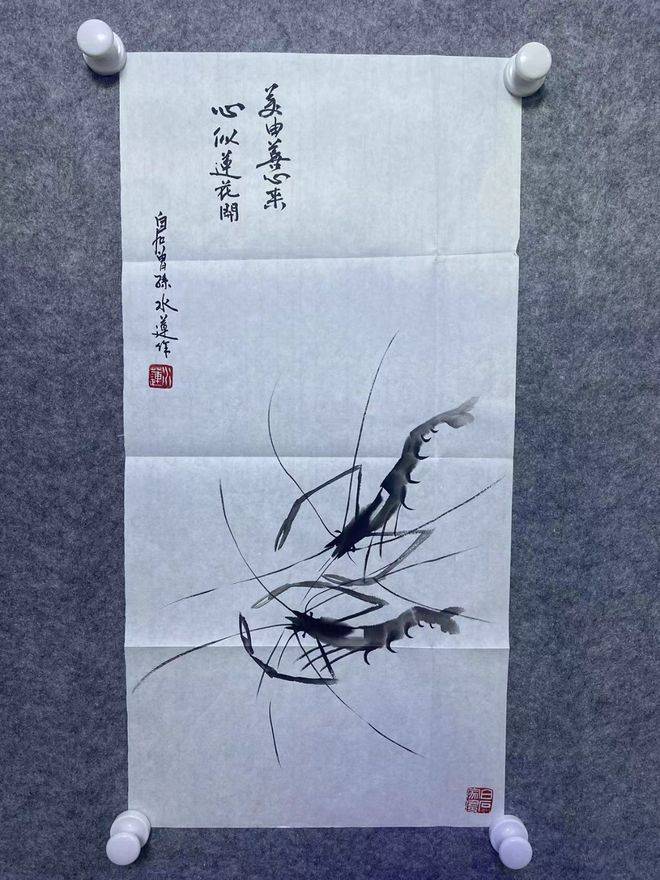 美由善心来
心似蓮花開
白石曾孫水蓮作
水蓮